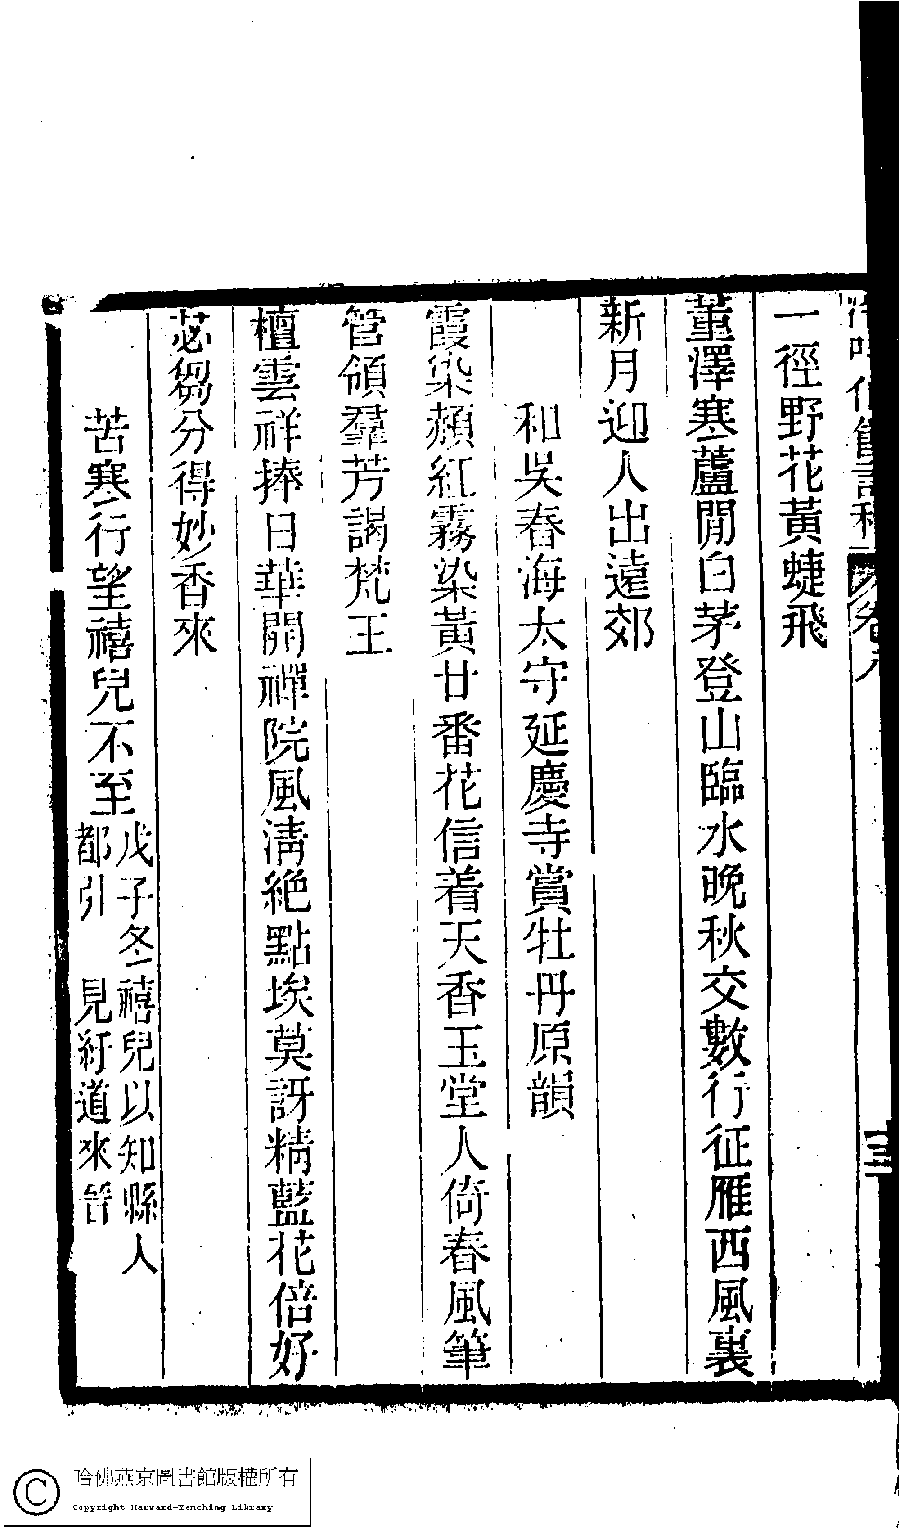 卷八
一徑野花黃蜨飛
董澤寒蘆閒白茅登山臨水晚秋交數行征雁西風裏
新月迎人出遠郊
和吳春海太守延慶寺賞牡丹原韻
霞染頳紅霧染黃廿番花信着天香玉堂人倚春風筆
管領羣芳謁梵王
檀雲祥捧日華開禪院風淸絶點埃莫訝精藍花倍好
苾芻分得妙香來
苦寒行望禧兒不至
戊子冬禧兒以知縣入
都引　見紆道來晉
哈佛燕京圖書館版權所有
Copyright Harvard-Yenching Library